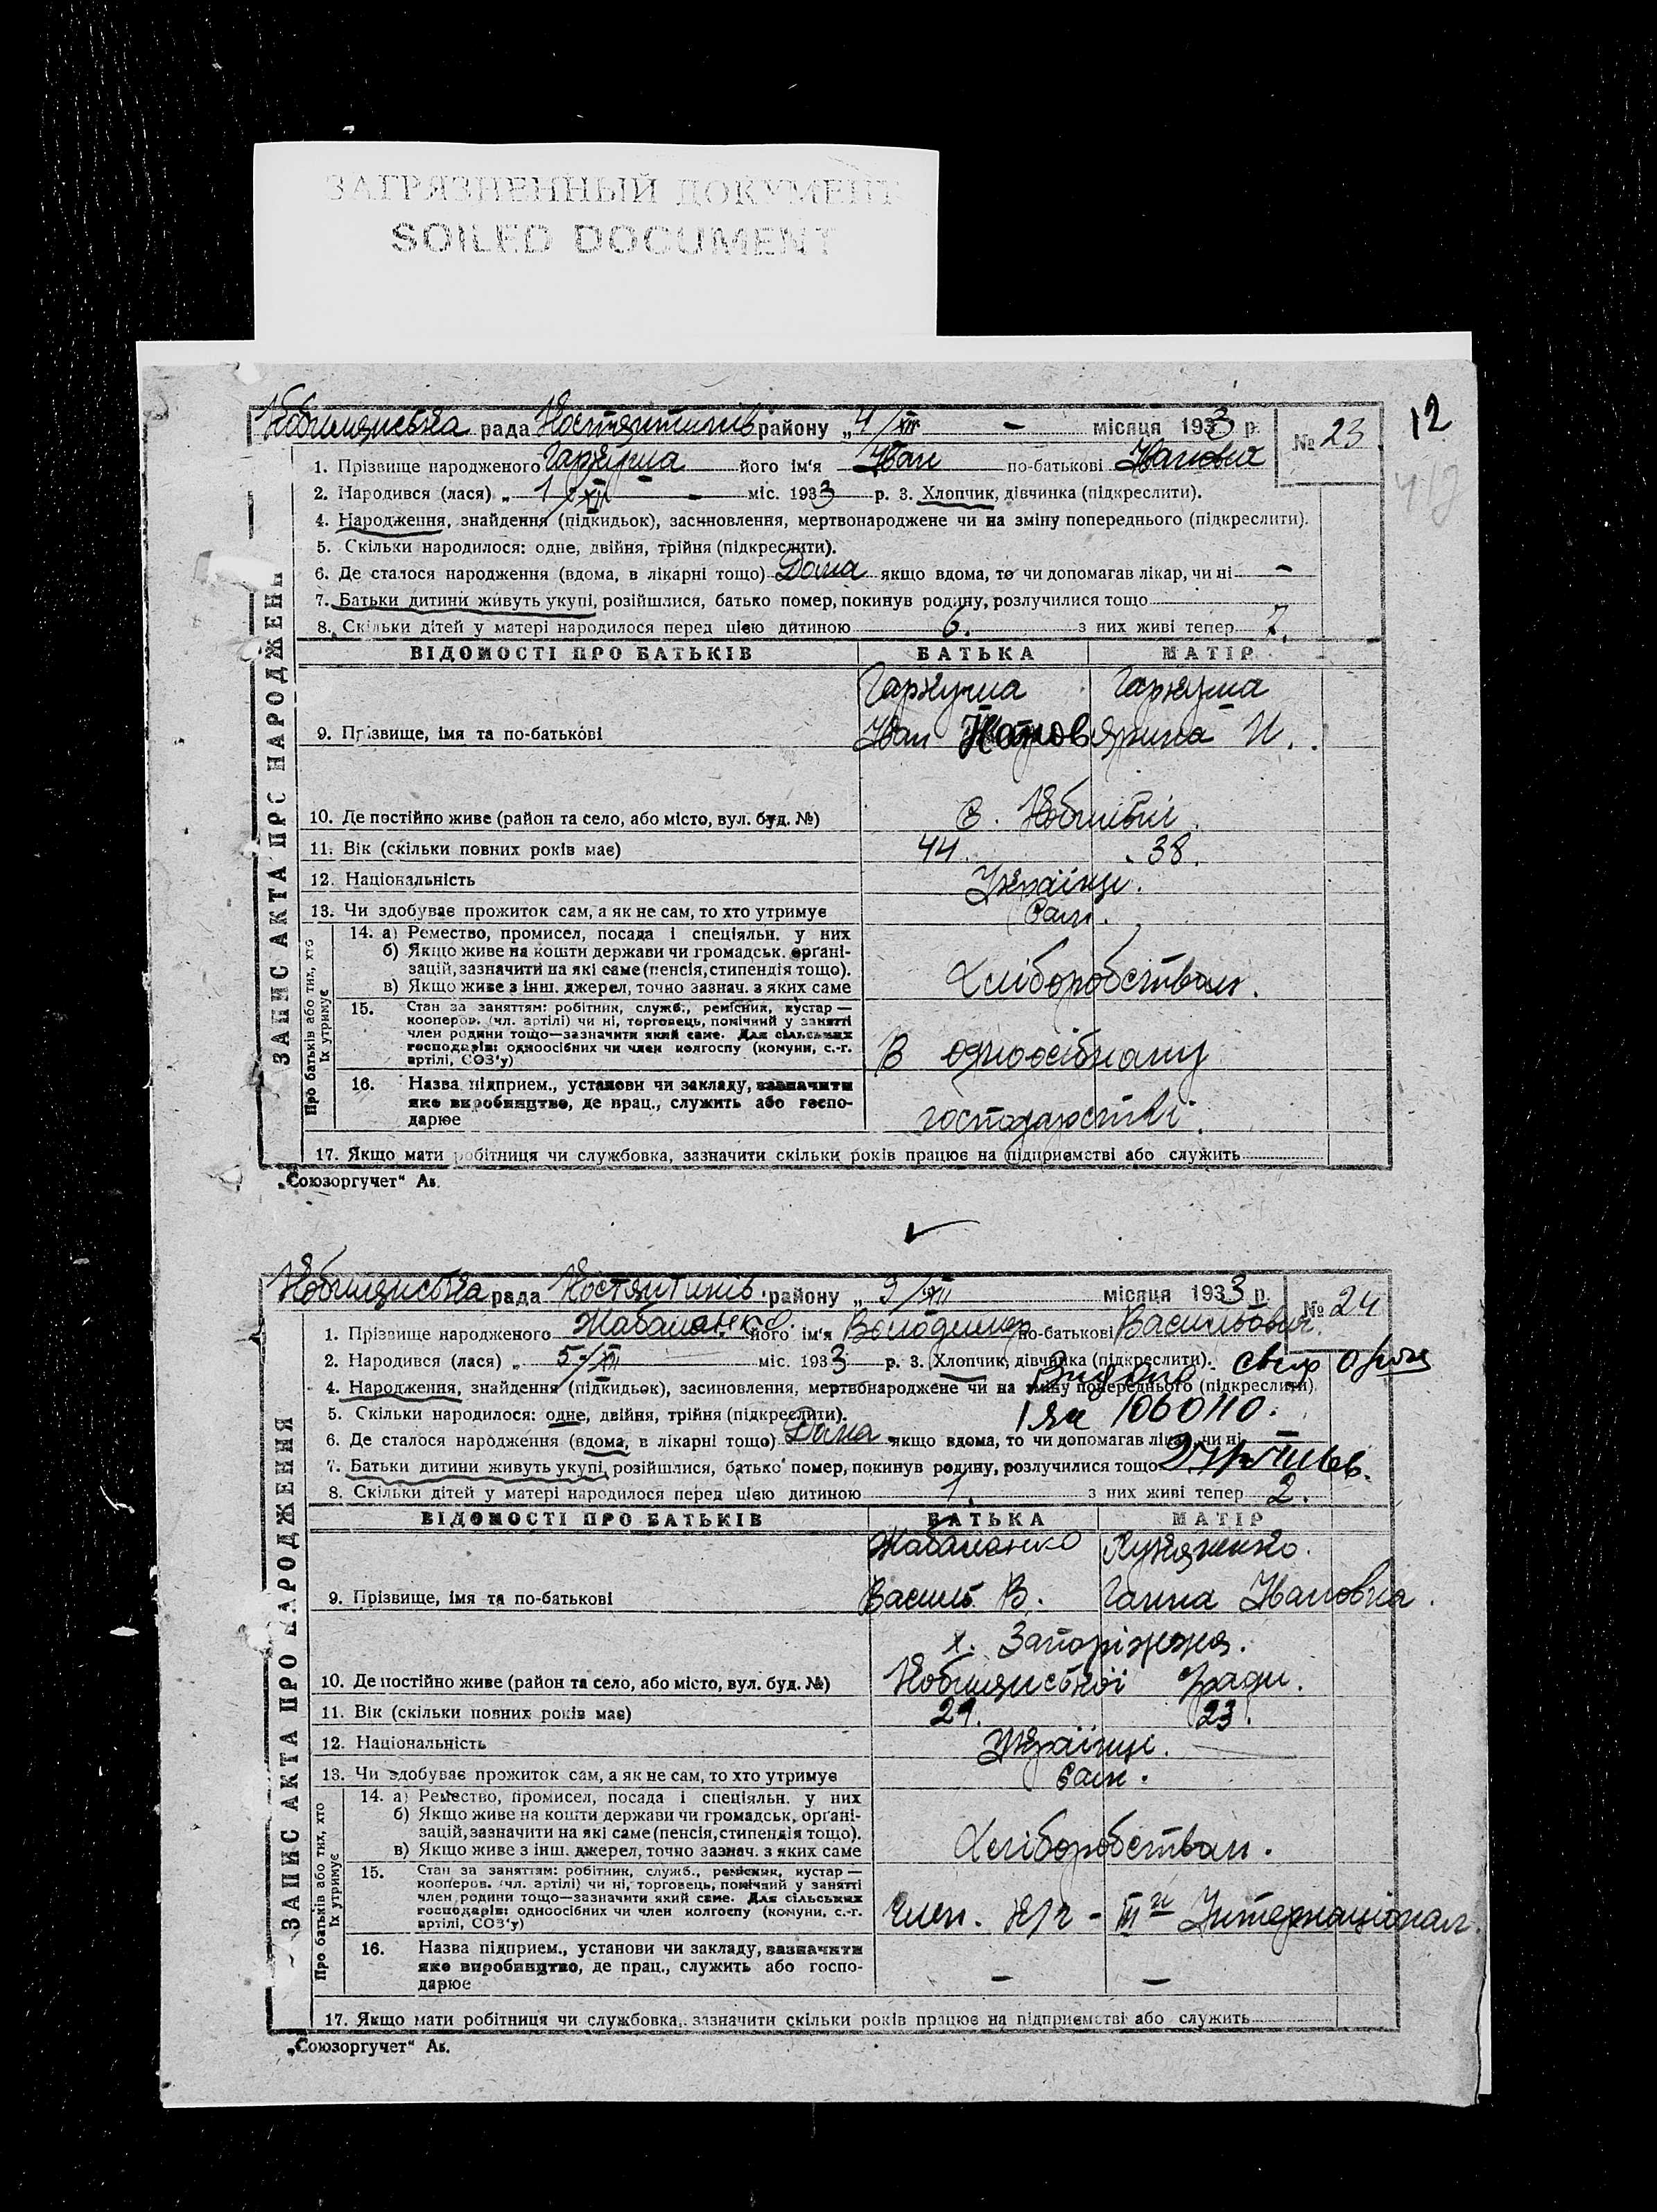 ЗАГРЯЗНЕННЫЙ ДОКУМЕНТ
SOILED DOCUMENT
12
рада Костянтинів району „4/XII - місяця 1933 р. № 23
1. Прізвище народженого Гаркуша його ім'я Іван по-батькові Іванович
2. Народився (лася) „ 1/XII - міс. 1933 р. 3. Хлопчик, дівчинка (підкреслити).
4. Народження, знайдення (підкидьок), засиновлення, мертвонароджене чи на зміну попереднього (підкреслити).
5. Скільки народилося: одне, двійня, трійня (підкреслити).
6. Де сталося народження (вдома, в лікарні тощо) Дома якщо вдома, то чи допомагав лікар, чи ні -
7. Батьки дитини живуть укупі, розійшлися, батько помер, покинув родину, розлучилися тощо
8. Скільки дітей у матері народилося перед цією дитиною 6. з них живі тепер 7.
ВІДОМОСТІ ПРО БАТЬКІВ БАТЬКА МАТІР
Гаркуша Гаркуша
9. Прізвище, імя та по-батькові Іван Ярина И.
10. Де постійно живе (район та село, або місто, вул. буд. №) с.
11. Вік (скільки повних років має) 44. 38.
12. Національність Українці.
13. Чи здобуває прожиток сам, а як не сам, то хто утримує Сам.
14. а) Ремество, промисел, посада і спеціяльн. у них
б) Якщо живе на кошти держави чи громадськ. органі-
зацій, зазначити на які саме (пенсія, стипендія тощо). Хліборобством.
в) Якщо живе з інш. джерел, точно зазнач. з яких саме
15. Стан за заняттям: робітник, служб., ремісник, кустар —
кооперов. (чл. артілі) чи ні, торговець, помічний у занятті
член родини тощо—зазначити який саме. Для сільських
господарів: одноосібних чи член колгоспу (комуни, с.-г. В одноосібному
артілі, СОЗ'у)
16. Назва підприєм., установи чи закладу, зазначити
яке виробництво, де прац., служить або госпо-
дарює господарстві.
17. Якщо мати робітниця чи службовка, зазначити скільки років працює на підприємстві або служить
ЗАПИС АКТА ПРО НАРОДЖЕННЯ
Про батьків або тих, хто
їх утримує
„Союзоргучет" Ак.
рада Костянтинів. району „ 9/XII місяця 1933 р. № 24
1. Прізвище народженого Жабаланко. його ім'я Володимир по-батькові Васильович.
2. Народився (лася) „ 5/XII міс. 1933 р. 3. Хлопчик, дівчинка (підкреслити).
4. Народження, знайдення (підкидьок), засиновлення, мертвонароджене чи на зміну попереднього (підкреслити).
5. Скільки народилося: одне, двійня, трійня (підкреслити). 1060110.
6. Де сталося народження (вдома, в лікарні тощо) Дома якщо вдома, то чи допомагав лікар, чи ні -
7. Батьки дитини живуть укупі, розійшлися, батько помер, покинув родину, розлучилися тощо
8. Скільки дітей у матері народилося перед цією дитиною 1. з них живі тепер 2.
ВІДОМОСТІ ПРО БАТЬКІВ БАТЬКА МАТІР
Жабаланко
9. Прізвище, імя та по-батькові Василь В. Ганна Івановна.
х. Запоріжжя.
10. Де постійно живе (район та село, або місто, вул. буд. №) с/ради.
11. Вік (скільки повних років має) 29. 23.
12. Національність Українці.
13. Чи здобуває прожиток сам, а як не сам, то хто утримує сам.
14. а) Ремество, промисел, посада і спеціяльн. у них
б) Якщо живе на кошти держави чи громадськ. органі-
зацій, зазначити на які саме (пенсія, стипендія тощо). Хліборобством.
в) Якщо живе з інш. джерел, точно зазнач. з яких саме
15. Стан за заняттям: робітник, служб., ремісник, кустар —
кооперов. (чл. артілі) чи ні, торговець, помічний у занятті
член родини тощо—зазначити який саме. Для сільських
господарів: одноосібних чи член колгоспу (комуни, с.-г. Член. к/г - III й Інтернаціонал.
артілі, СОЗ'у)
16. Назва підприєм., установи чи закладу, зазначити
яке виробництво, де прац., служить або госпо- - -
дарює
17. Якщо мати робітниця чи службовка, зазначити скільки років працює на підприємстві або служить
ЗАПИС АКТА ПРО НАРОДЖЕННЯ
Про батьків або тих, хто
їх утримує
„Союзоргучет" Ак.